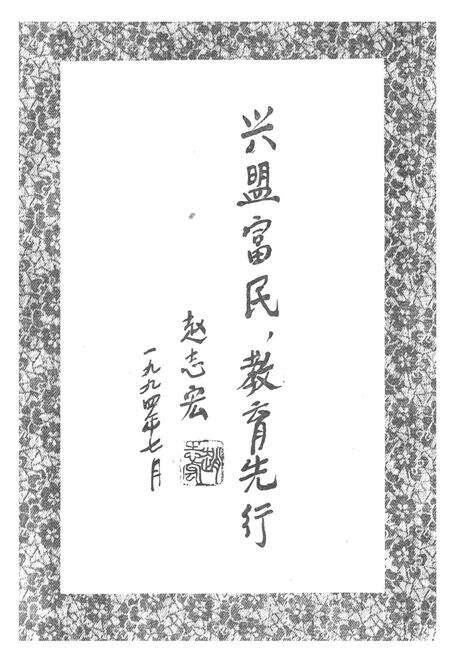 兴盟富民，教育先行
赵志宏
一九九四年七月